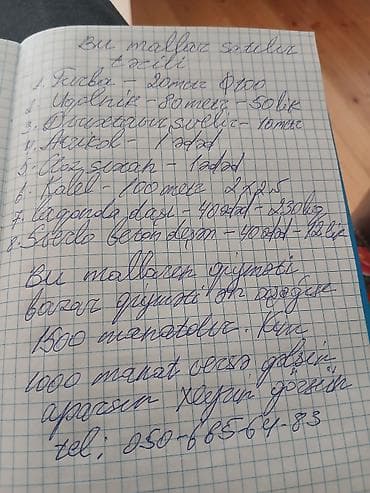 Bu mallar satılır
təcili
1. Turba - 20metr Ø100
2. Uqolnik - 80metr - 50lik
3. 10metr
4. - 1ədəd
5. - 1ədəd
6. Kabel - 100metr 2x2.5
7. Laqonda daşı - 40ədəd - 230luq
8. Sverlo beton deşən - 40ədəd - 12lik
Bu malların qiyməti
bazar qiyməti ən aşağısı
1500 manatdır. Kim
1000 manat versə gəlsin
aparsın xeyrin görsün
tel: 050-665-64-83